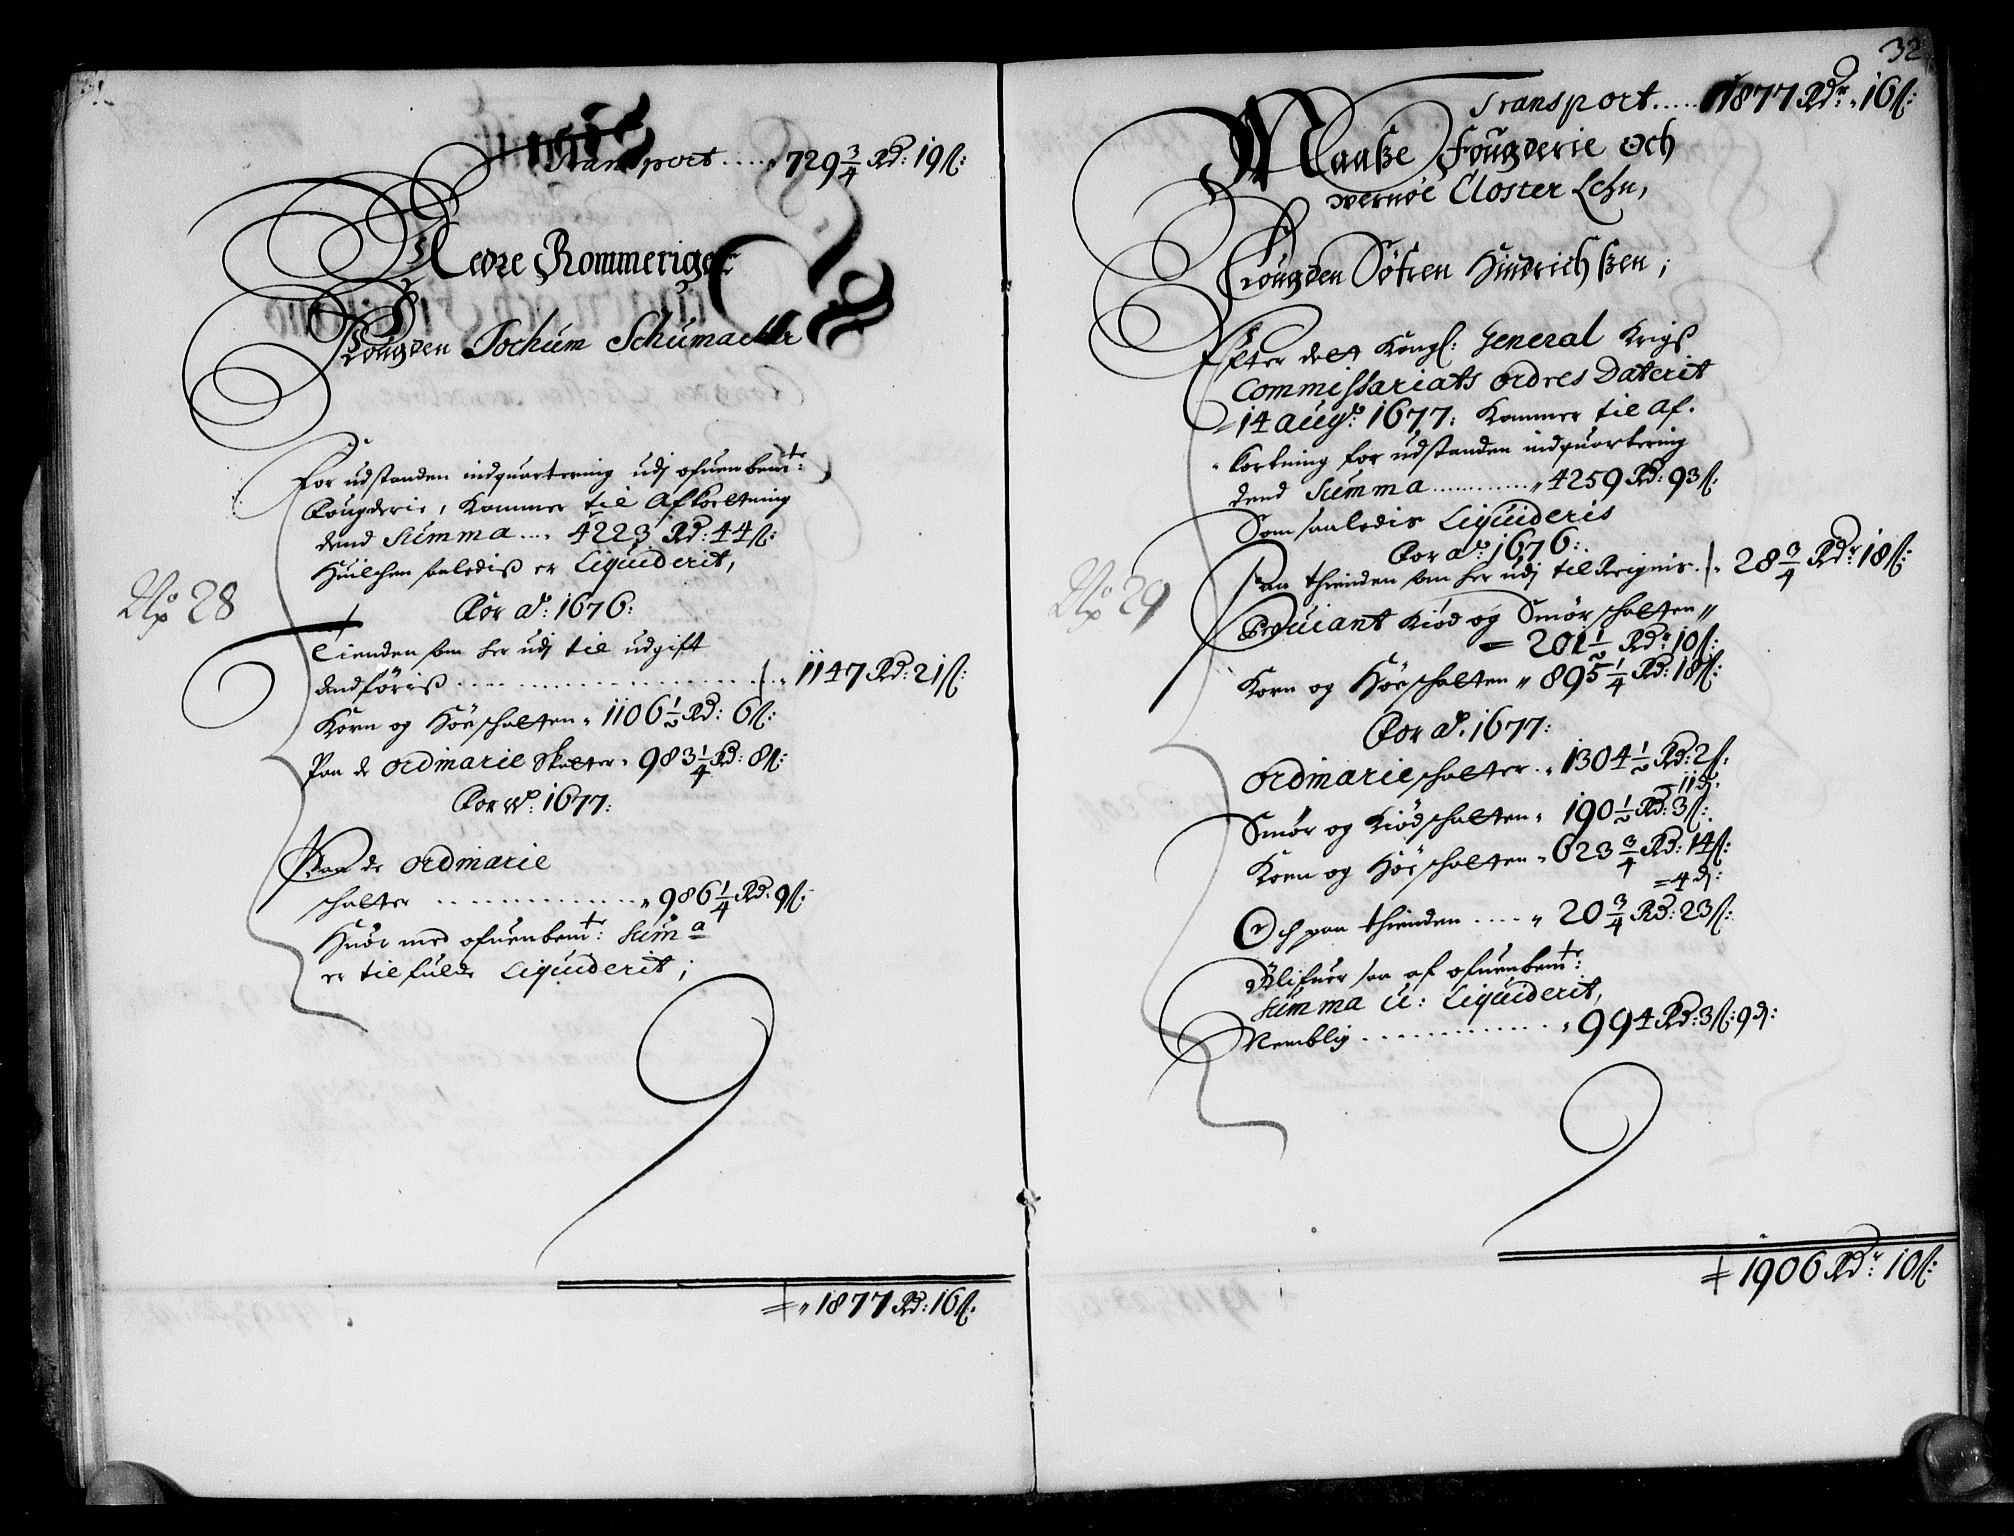 Transport ..... 729 3/4 Rd: 19 ß:
Nedre Rommerige
Fougden Jochum Schumacher
For udstanden indquartering udj ofuenbemte:
Fougderie, Kommer til Afkortning
dend Summa .... 4223 Rd: 44 ß:
Huilchen saaledis er Liquiderit,
No 28
For ao: 1676:
Tienden som her udj til udgift
Andföris .......... 1147 Rd: 21 ß:
Korn og Höeschatten 1106 1/2 Rd: 6 ß:
Paa de ordinarie Skatter 983 1/4 Rd: 8 ß:
For Ao: 1677:
Paa de ordinarie
schatter .......... 986 1/4 Rd: 9 ß:
Huor med ofuenbemte: Suma
er til fulde Liquiderit;
1877 Rd: 16 ß:
32
Transport ..... 1877 Rdr 16 ß:
Maaße Fougderie Och
wernöe Closter Lehn,
Fougden Söfren Hindrichßen;
Efter det Kongl: General Krigß
Commissariats ordres Daterit
14 Augti 1677: Kommer til Af-
kortning for udstanden indquartering
dend Summa .......... 4259 Rd: 93 ß:
Som saaledis Liquideris
For ao: 1676:
No 29
Paa thienden som her udj til Reignis. 28 3/4 Rdr 18 ß:
Proviant Kiöd og Smör schatten
= 201 1/2 Rdr 10 ß:
Korn og Höeschatten 895 1/4 Rd: 18 ß:
For ao. 1677:
ordinarie schatter 1304 1/2 Rd: 2 ß:
= 11 d:
Smör og Kiödschatten 190 1/2 Rd: 3 ß:
Korn og Höeschatten 623 3/4 Rd: 14 ß:
= 4 d:
Och paa thienden .... 20 3/4 Rd: 23 ß:
Blifuer saa af ofuenbemte:
Summa u: Liquiderit,
Nemblig .......... 994 Rd: 3 ß: 9 d:
1906 Rdr 10 ß: